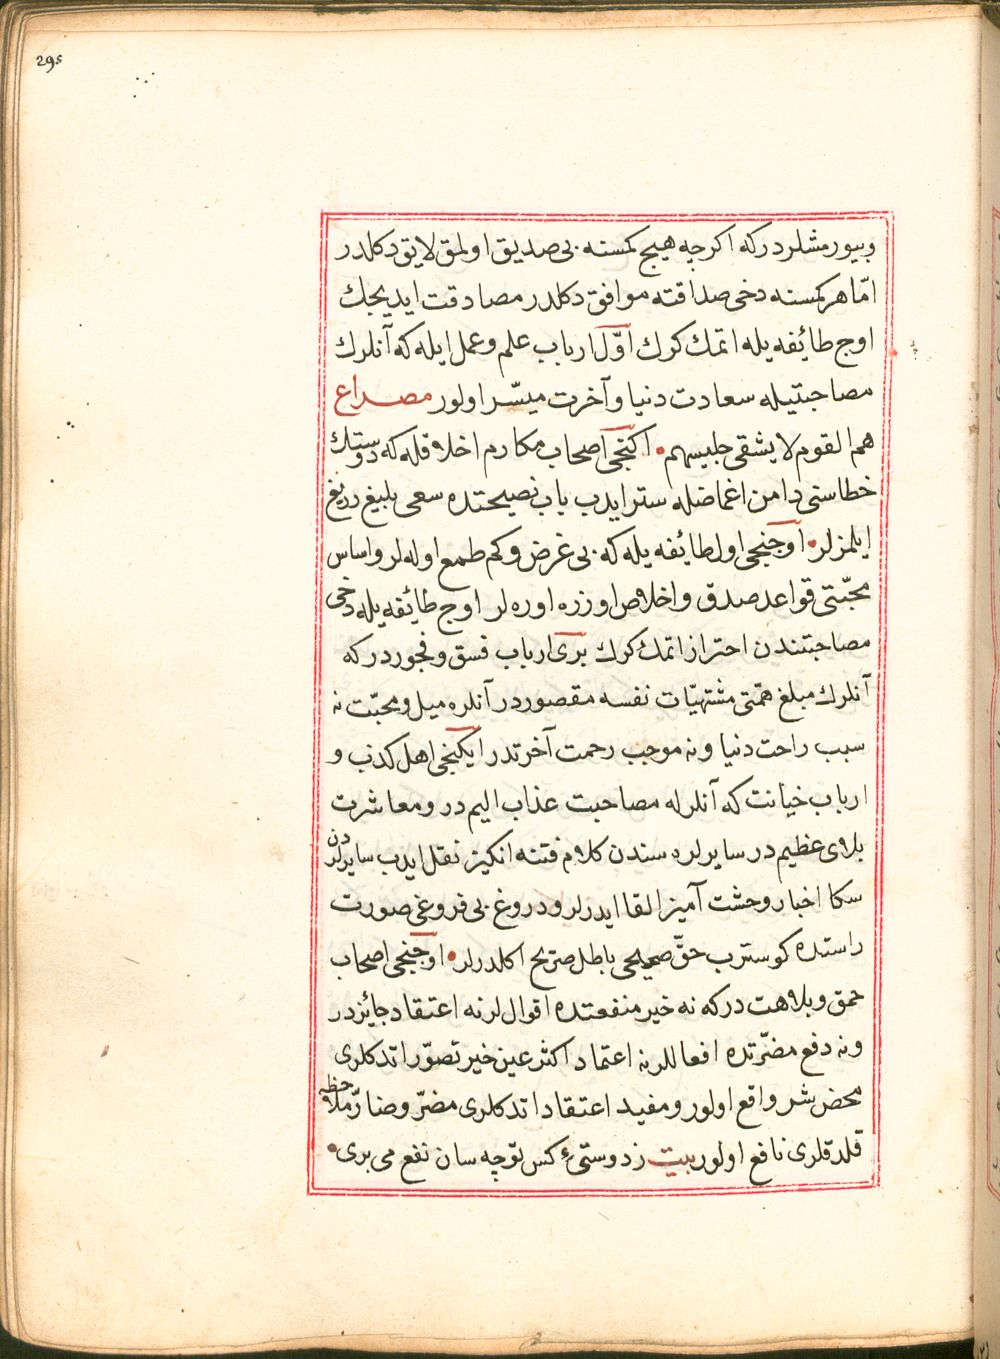 295
وبيورمشلردركه اكرچه هيچ كمسنه بی صديق اولمق لايق دكلدر
امّا هركمسنه دخی صداقته موافق دكلدر مصادقت ايديجك
اوچ طائفه يله اتمك كرك اوّل ارباب علم وعمل ايله كه آنلرك
مصاحبتيله سعادت دنيا وآخرت ميسّر اولور مصراع
هم القوم لا يشقی جليسهم اكنجی اصحاب مكارم اخلاقله كه دوستك
خطاسنی دامن اغماضله ستر ايدب باب نصيحتده سعی بليغ دريغ
ايلمزلر اوچنجی اول طائفه يله كه بی غرض وكم طمع اوله لر واساس
محبّتی قواعد صدق واخلاص اوزره اوره لر اوچ طائفه يله دخی
مصاحبتندن احتراز اتمك كرك بری ارباب فسق وفجوردر كه
آنلرك مبلغ همّتی مشتهيّات نفسه مقصوردر آنلره ميل ومحبّت نه
سبب راحت دنيا ونه موجب رحمت آخرتدر ايكنجی اهل كذب و
ارباب خيانت كه آنلرله مصاحبت عذاب اليم در ومعاشرت
بلای عظيم در سايرلره سندن كلام فتنه انكيز نقل ايدب سايرلردن
سكا اخبار وحشت آميز القا ايدرلر ودروغ بی فروغی صورت
راستده كوسترب حقّ صحيحی باطل صريح اكلدرلر اوچنجی اصحاب
حمق وبلاهت دركه نه خير منفعتده اقوال لرنه اعتقاد جائزدر
ونه دفع مضرّتده افعاللرنه اعتماد اكثر عين خير تصوّر اتدكلری
محض شر واقع اولور ومفيد اعتقاد اتدكلری مضرّ وضارّ ملاحظه
قلدقلری نافع اولور بيت ز دوستیٔ كس توچه سان نفع می بری